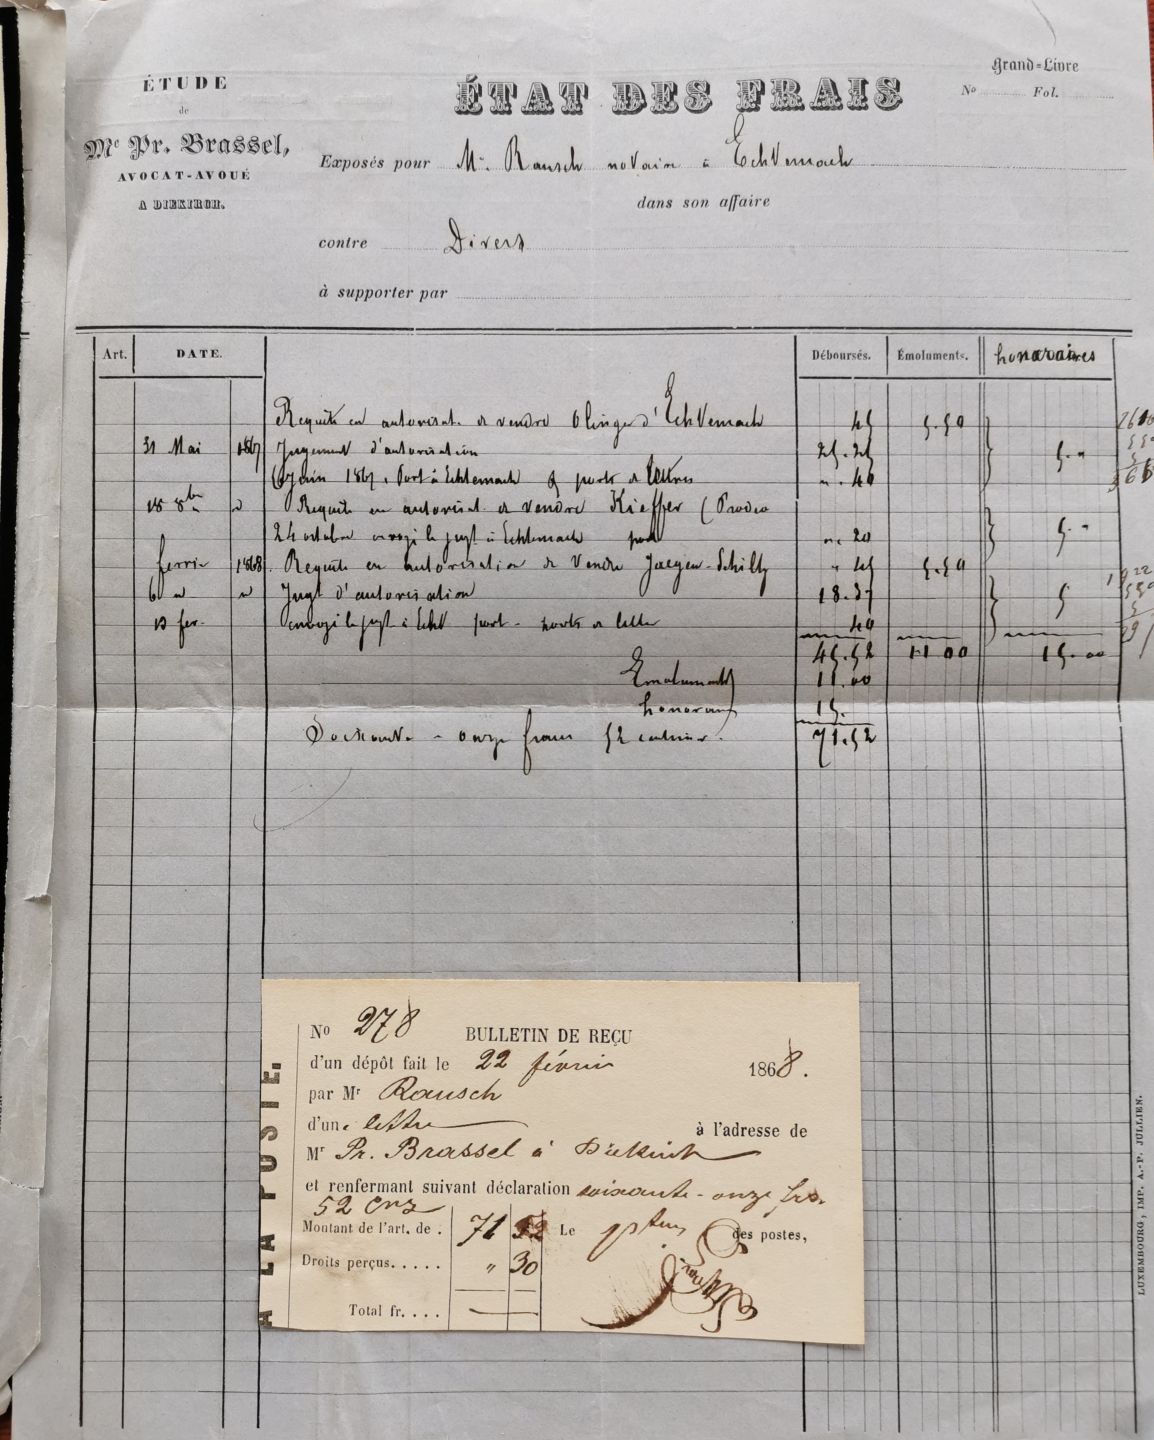 ÉTUDE
de
Me Pr. Brassel,
AVOCAT-AVOUÉ
A DIEKIRCH.
ÉTAT DES FRAIS
Grand=Livre
No Fol.
Exposés pour Me. Rausch notaire à Echternach
dans son affaire
contre Divers
à supporter par
Art. DATE. Déboursés. Émoluments. honoraires
Requête en autorisat. de vendre Olinger d'Echternach 45 5.50
31 Mai 1867 Jugement d'autorisation 25.25 5."
6 Juin 1867. Port à Echternach & ports de lettres ". 40
18 8bre d Requête en autorisat. de vendre Kieffer (Prodeo
24 octobre envoyé le jugt à Echternach port ". 20 5."
ferrier 1868. Requête en autorisation de vendre Jaegen-Schiltz " 45 5.50
6 " " Jugt d'autorisation 18.37 5
13 fer. envoyé le jugt à Echt port - ports de lettre 40
45.52 11.00 15.00
Emoluments 11.00
honoraires 15.
Soixante - onze francs 52 centimes. 71.52
A LA POSTE.
No 278 BULLETIN DE REÇU
d'un dépôt fait le 22 février 1868.
par Mr Rausch
d'une lettre à l'adresse de
Mr Pr. Brassel à Diekirch
et renfermant suivant déclaration soixante-onze frs.
52 cns
Montant de l'art. de . 71 52 Le des postes,
Droits perçus..... " 30
Total fr. ...
LUXEMBOURG, IMP. A.-P. JULLIEN.